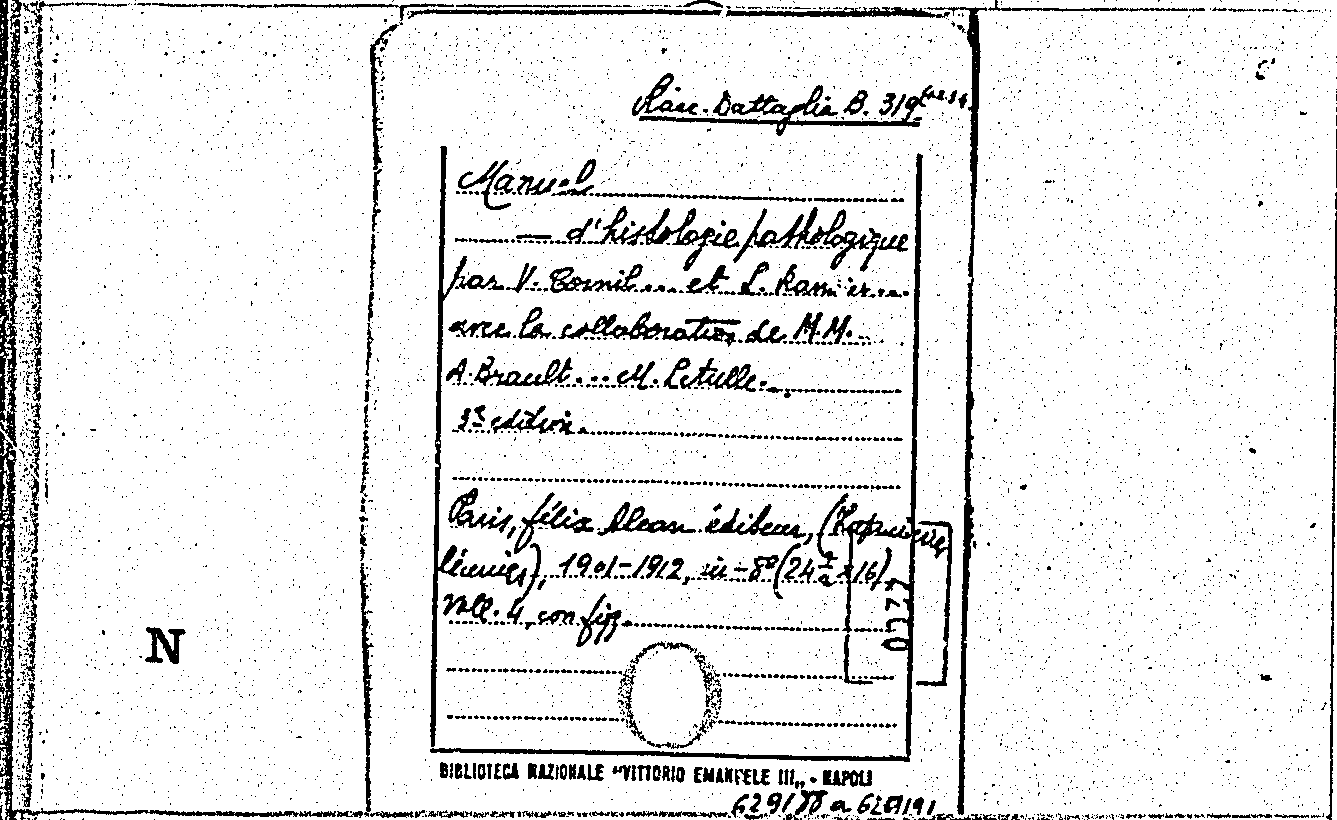 Racc. Battaglia B. 319
Manuel
— d'histologie pathologique
par V. Cornil... et L. Ranvier...
avec la collaboration de M.M.
A. Brault... M. Letulle.
3e édition.
Paris, félix Alcan éditeur, (
), 1901-1912, in-8º (24 x 16)
voll. 4, con figg.
0777
N
BIBLIOTECA NAZIONALE "VITTORIO EMANUELE III„ - NAPOLI
629188 a 629191